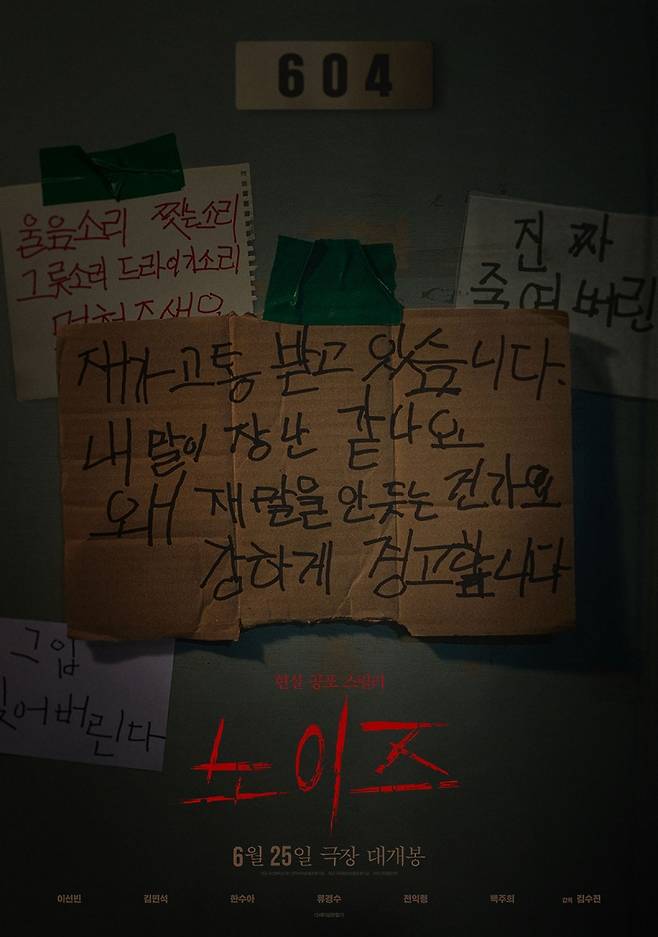 604
울음소리 찢는소리
그릇소리 드라이기소리
진짜
죽여버린
재가 고통 받고 있습니다.
내 말이 장난 같나요
왜 재 말을 안듣는 건가요
강하게 경고합니다
그입
찢어버린다
현실 공포 스릴러
노이즈
6월 25일 극장 대개봉
이선빈 김민석 한수아 류경수 전익령 백주희 감독 김수진